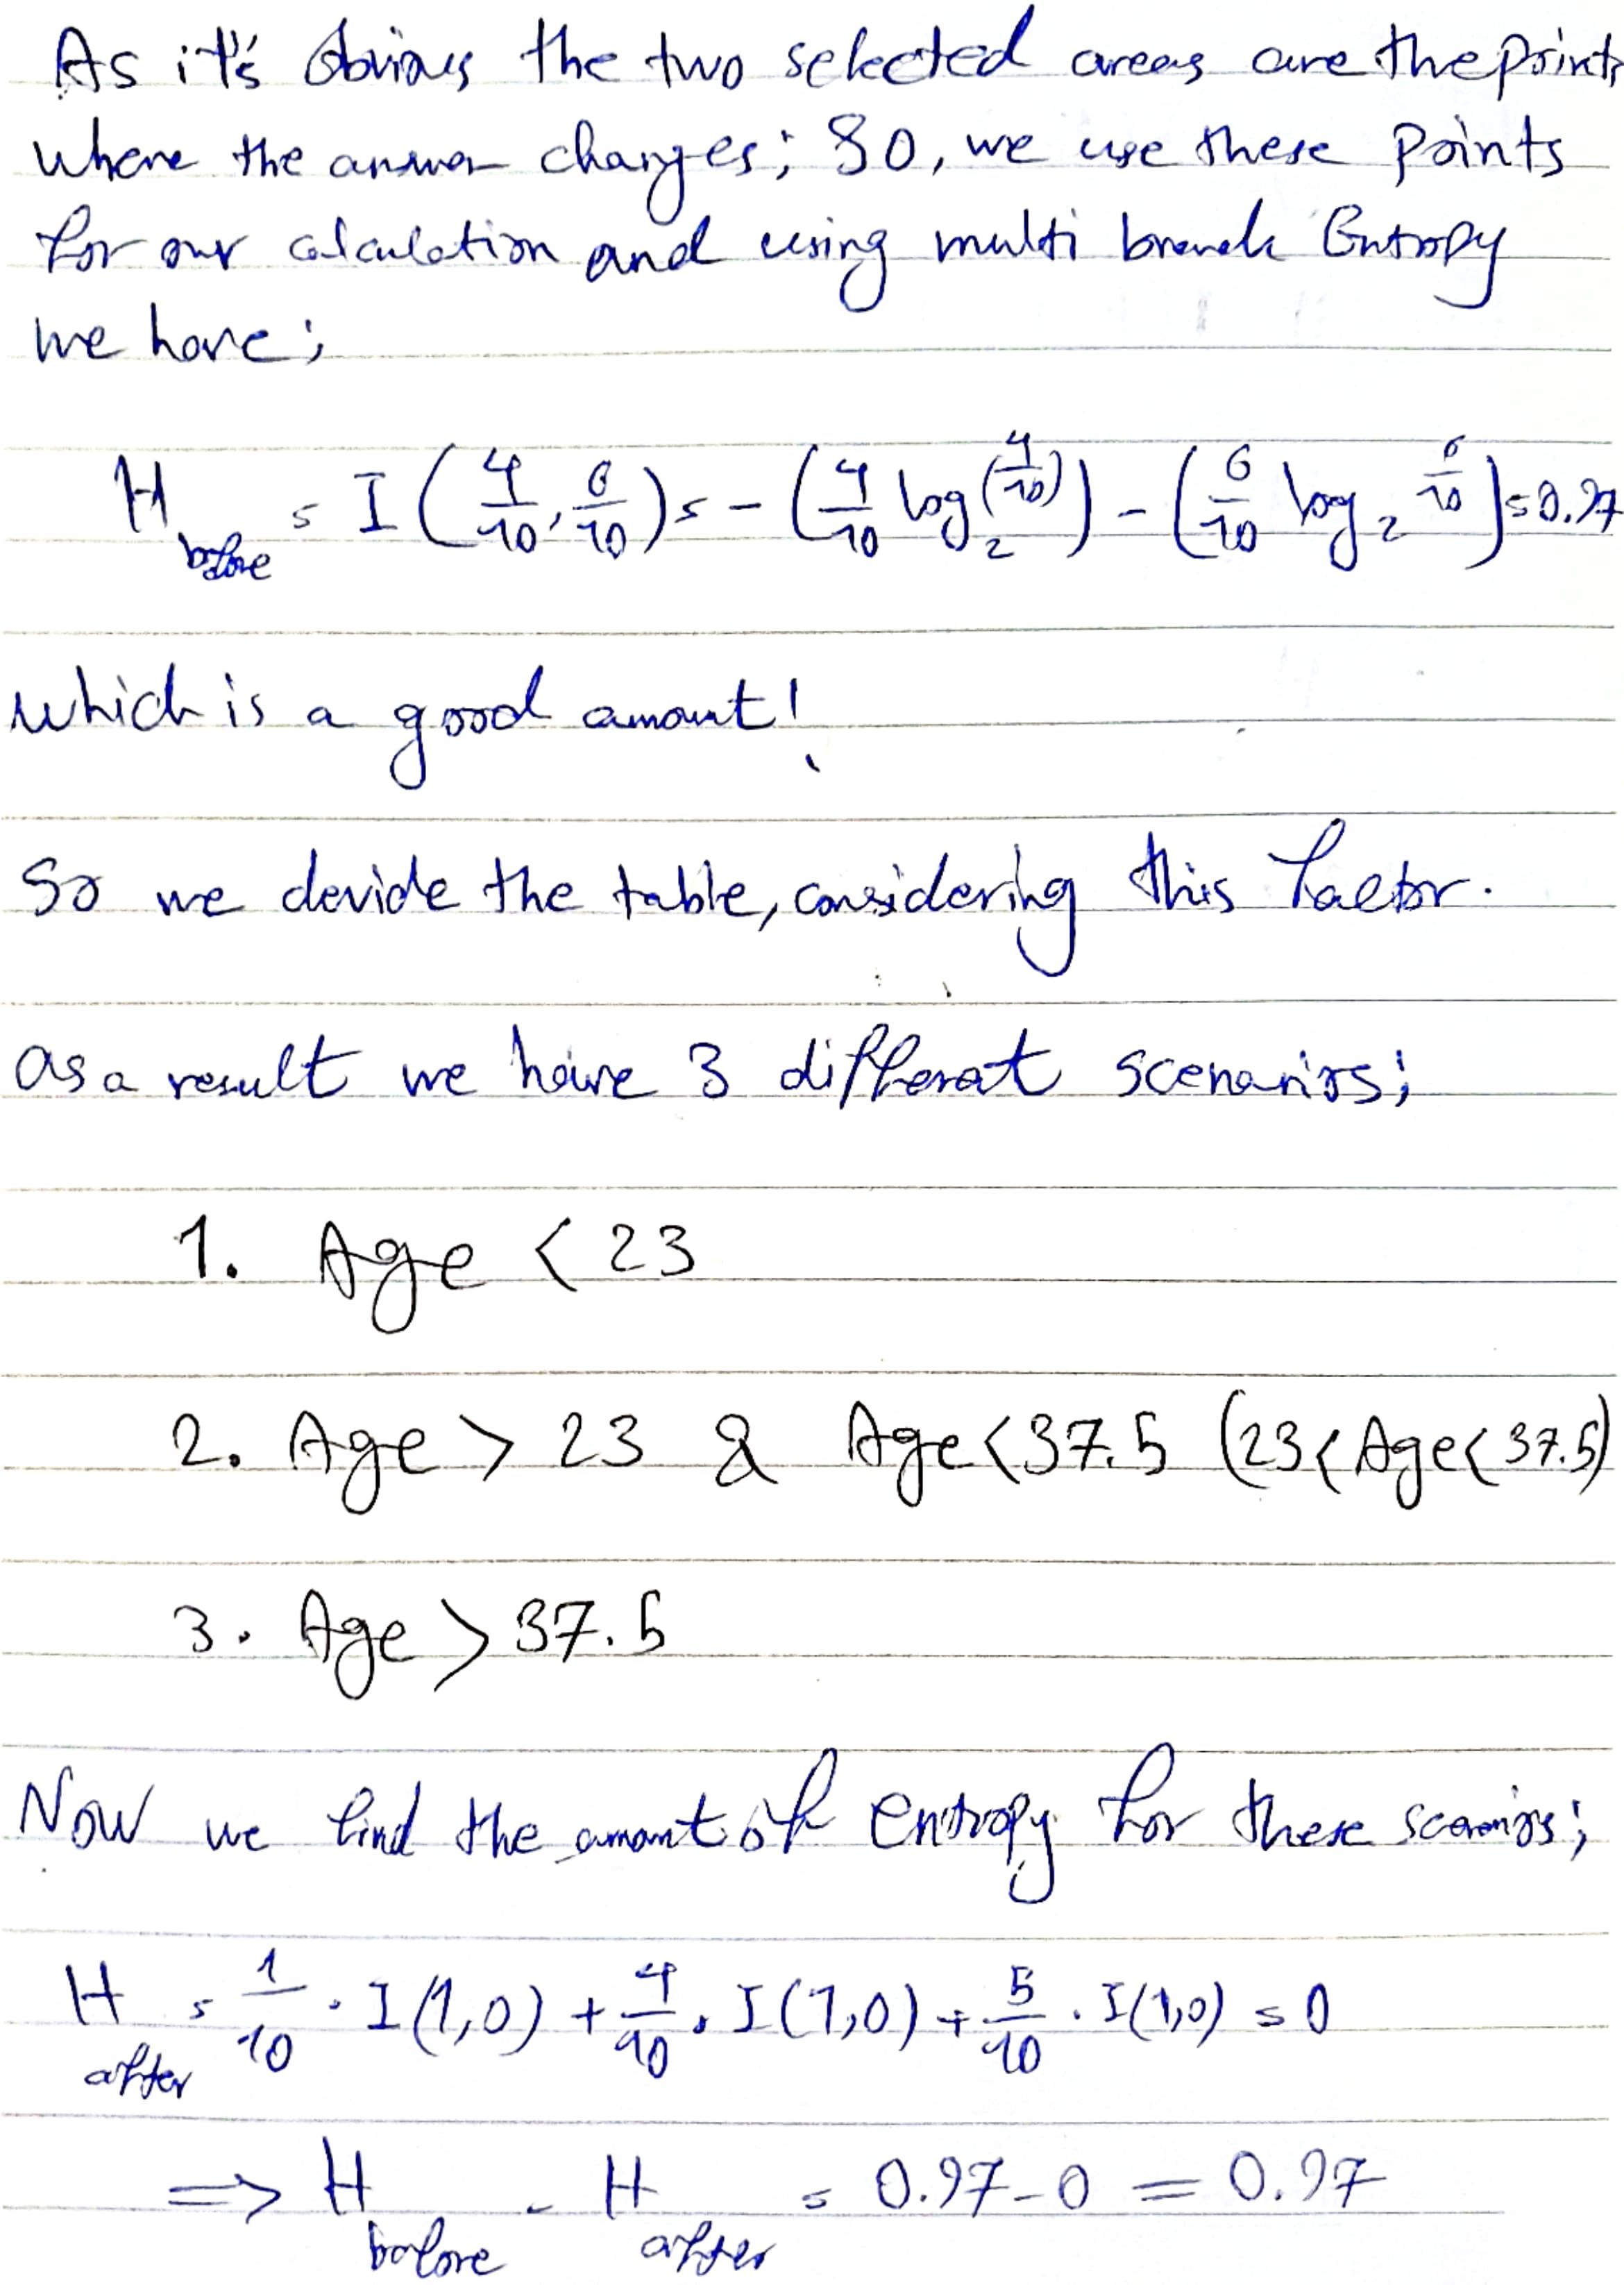 As it's obvious the two selected areas are the points
where the answer changes; So, we use these points
for our calculation and using multi branch Entropy
we have;
H before = I (4/10, 6/10) = - (4/10 log₂ (4/10)) - (6/10 log₂ 6/10) = 0.97
which is a good amount!
So we devide the table, considering this factor.
as a result we have 3 different scenarios;
1. Age < 23
2. Age > 23 & Age < 37.5 (23 < Age < 37.5)
3. Age > 37.5
Now we find the amount of entropy for these scenarios;
H after = 1/10 . I(1,0) + 4/10 . I(1,0) + 5/10 . I(1,0) = 0
⇒ H before - H after = 0.97 - 0 = 0.97